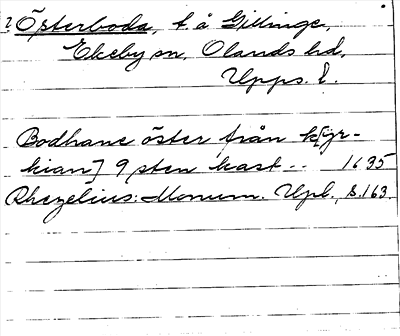 ? Österboda, t. å Gillinge,
Ekeby sn, Olands hd,
Upps. l.
Bodhane öster från k[yr-
kian] 9 sten kast -- 1635
Rhezelius: Monum. Upl., s. 163.